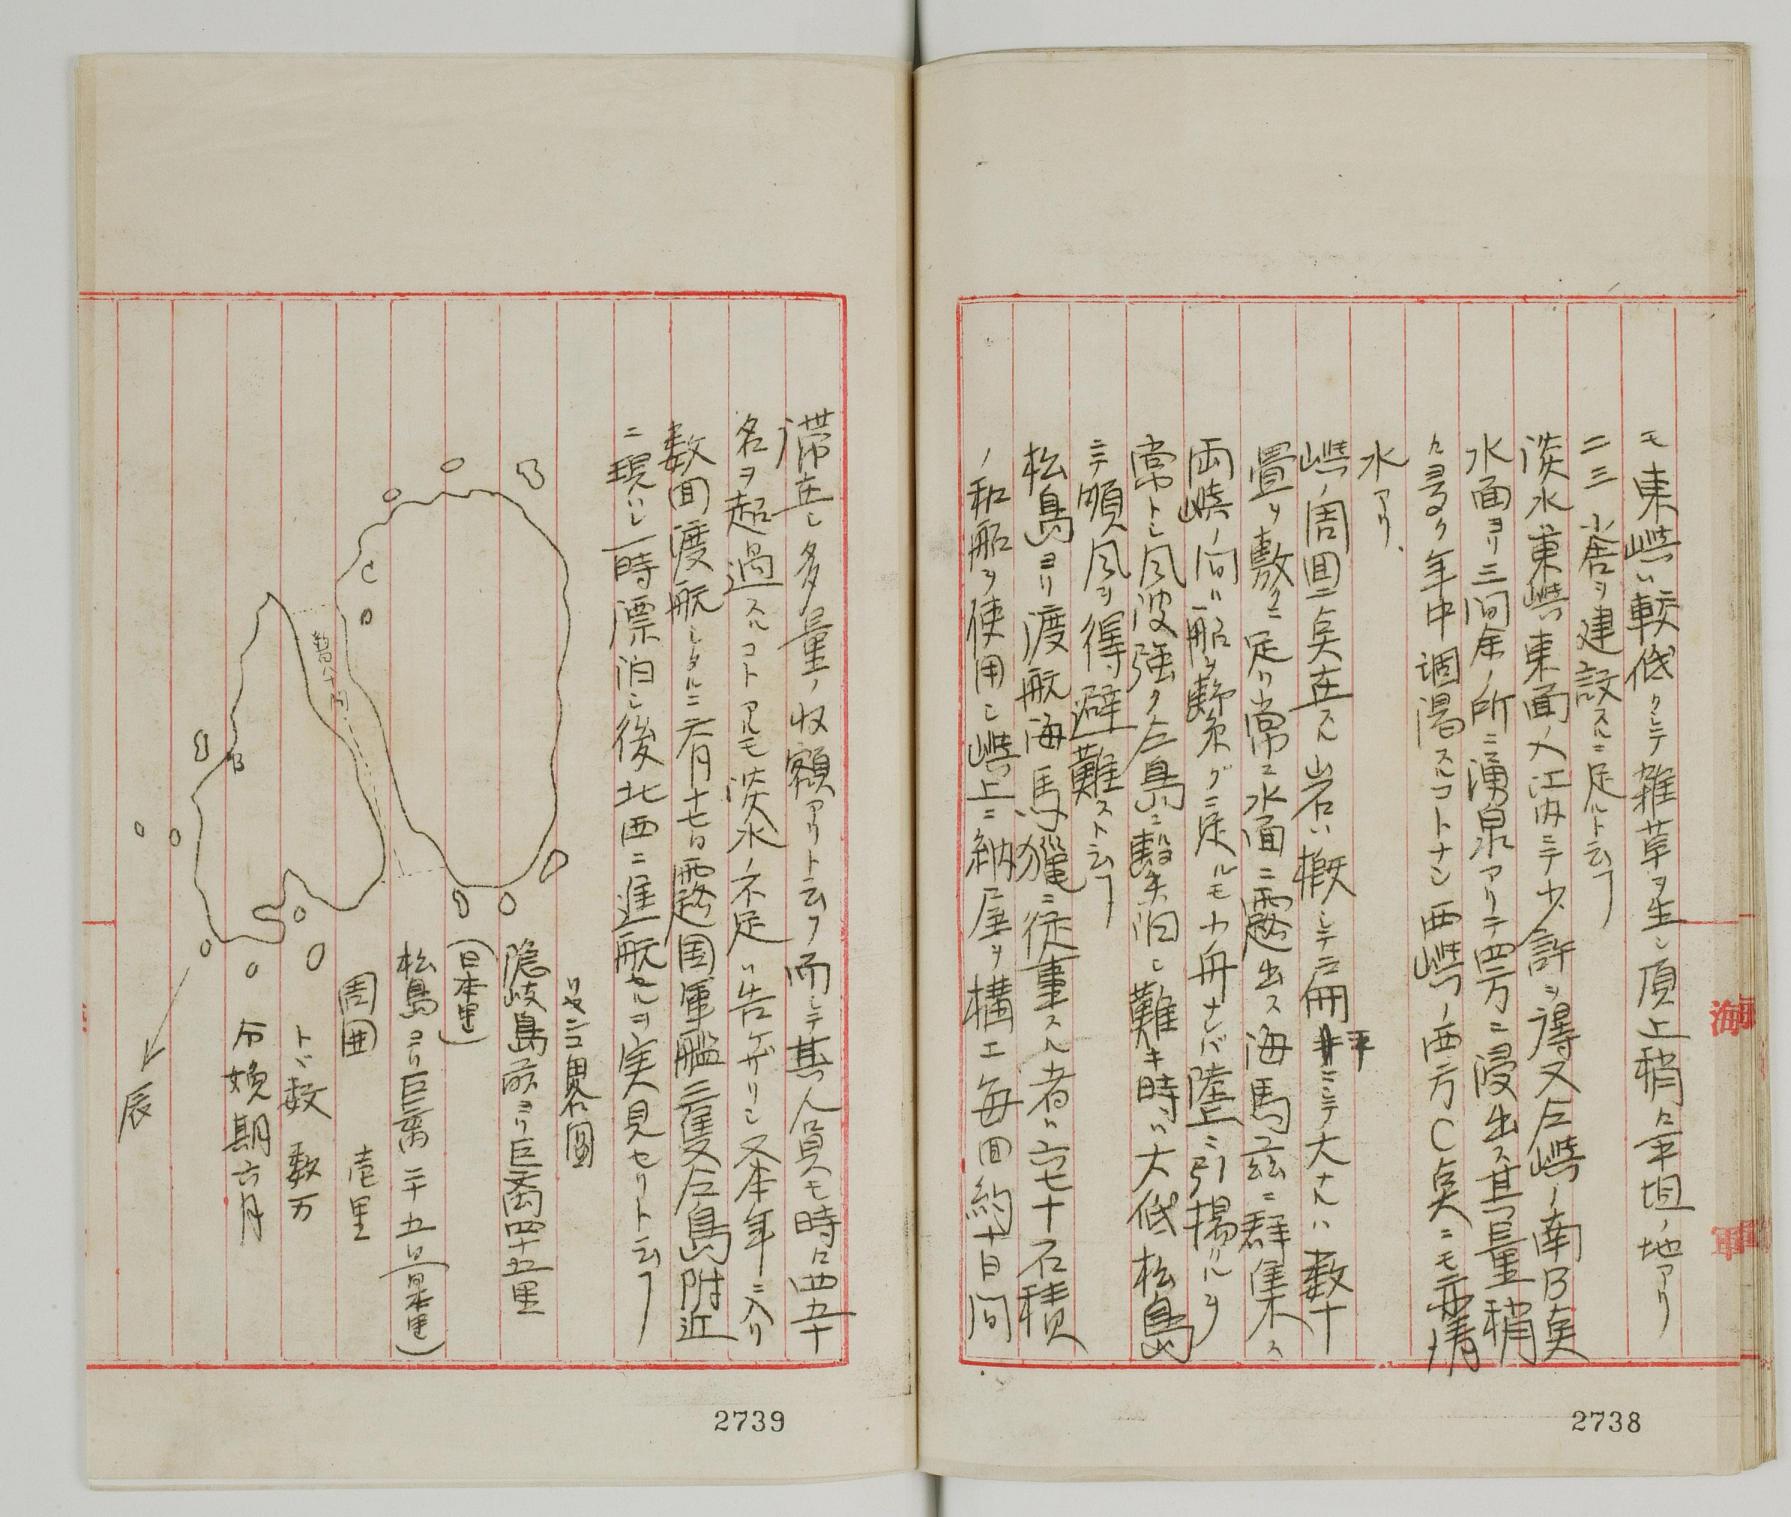 モ東嶼ハ較低クシテ雑草ヲ生シ頂上稍々平坦ノ地アリ
二三小舎ヲ建設スルニ足ルト云フ
淡水東嶼東面ノ入江内ニテ少許ヲ得又仝嶼ノ南B点
水面ヨリ三間余ノ所ニ湧泉アリテ四方ニ浸出ス其量稍
々多ク年中涸渇スルコトナシ西嶼ノ西方C点ニモ亦清
水アリ
嶼ノ周回ニ点在スル岩ハ概シテ扁平ニシテ大ナルハ数十
畳ヲ敷クニ足リ常ニ水面ニ露出ス海馬茲ニ群集ス
両嶼ノ間ハ船ヲ繋グニ足ルモ小舟ナレバ陸上ニ引揚ルヲ
常トシ風波強ク仝島ニ繋泊シ難キ時ハ大低松島
ニテ順風ヲ得避難スト云フ
松島ヨリ渡航海馬猟ニ従事スル者ハ六七十石積
ノ和船ヲ使用シ嶼上ニ納屋ヲ構エ毎回約十日間
海
軍
2738
滞在シ多量ノ収額アリト云フ而シテ其人員モ時ニ四五十
名ヲ超過スルコトアルモ淡水ノ不足ハ告ケザリシ又本年ニ入リ
数回渡航シタルニ六月十七日露国軍艦三隻仝島附近
ニ現ハレ一時漂泊シ後北西ニ進航セルヲ実見セリト云フ
リヤンコ畧図
隠岐島前ヨリ巨离四十五里
(日本里)
松島ヨリ巨离二十五里(日本里)
周囲 壱里
トド数 数万
分娩期六月
辰
C
B
2739